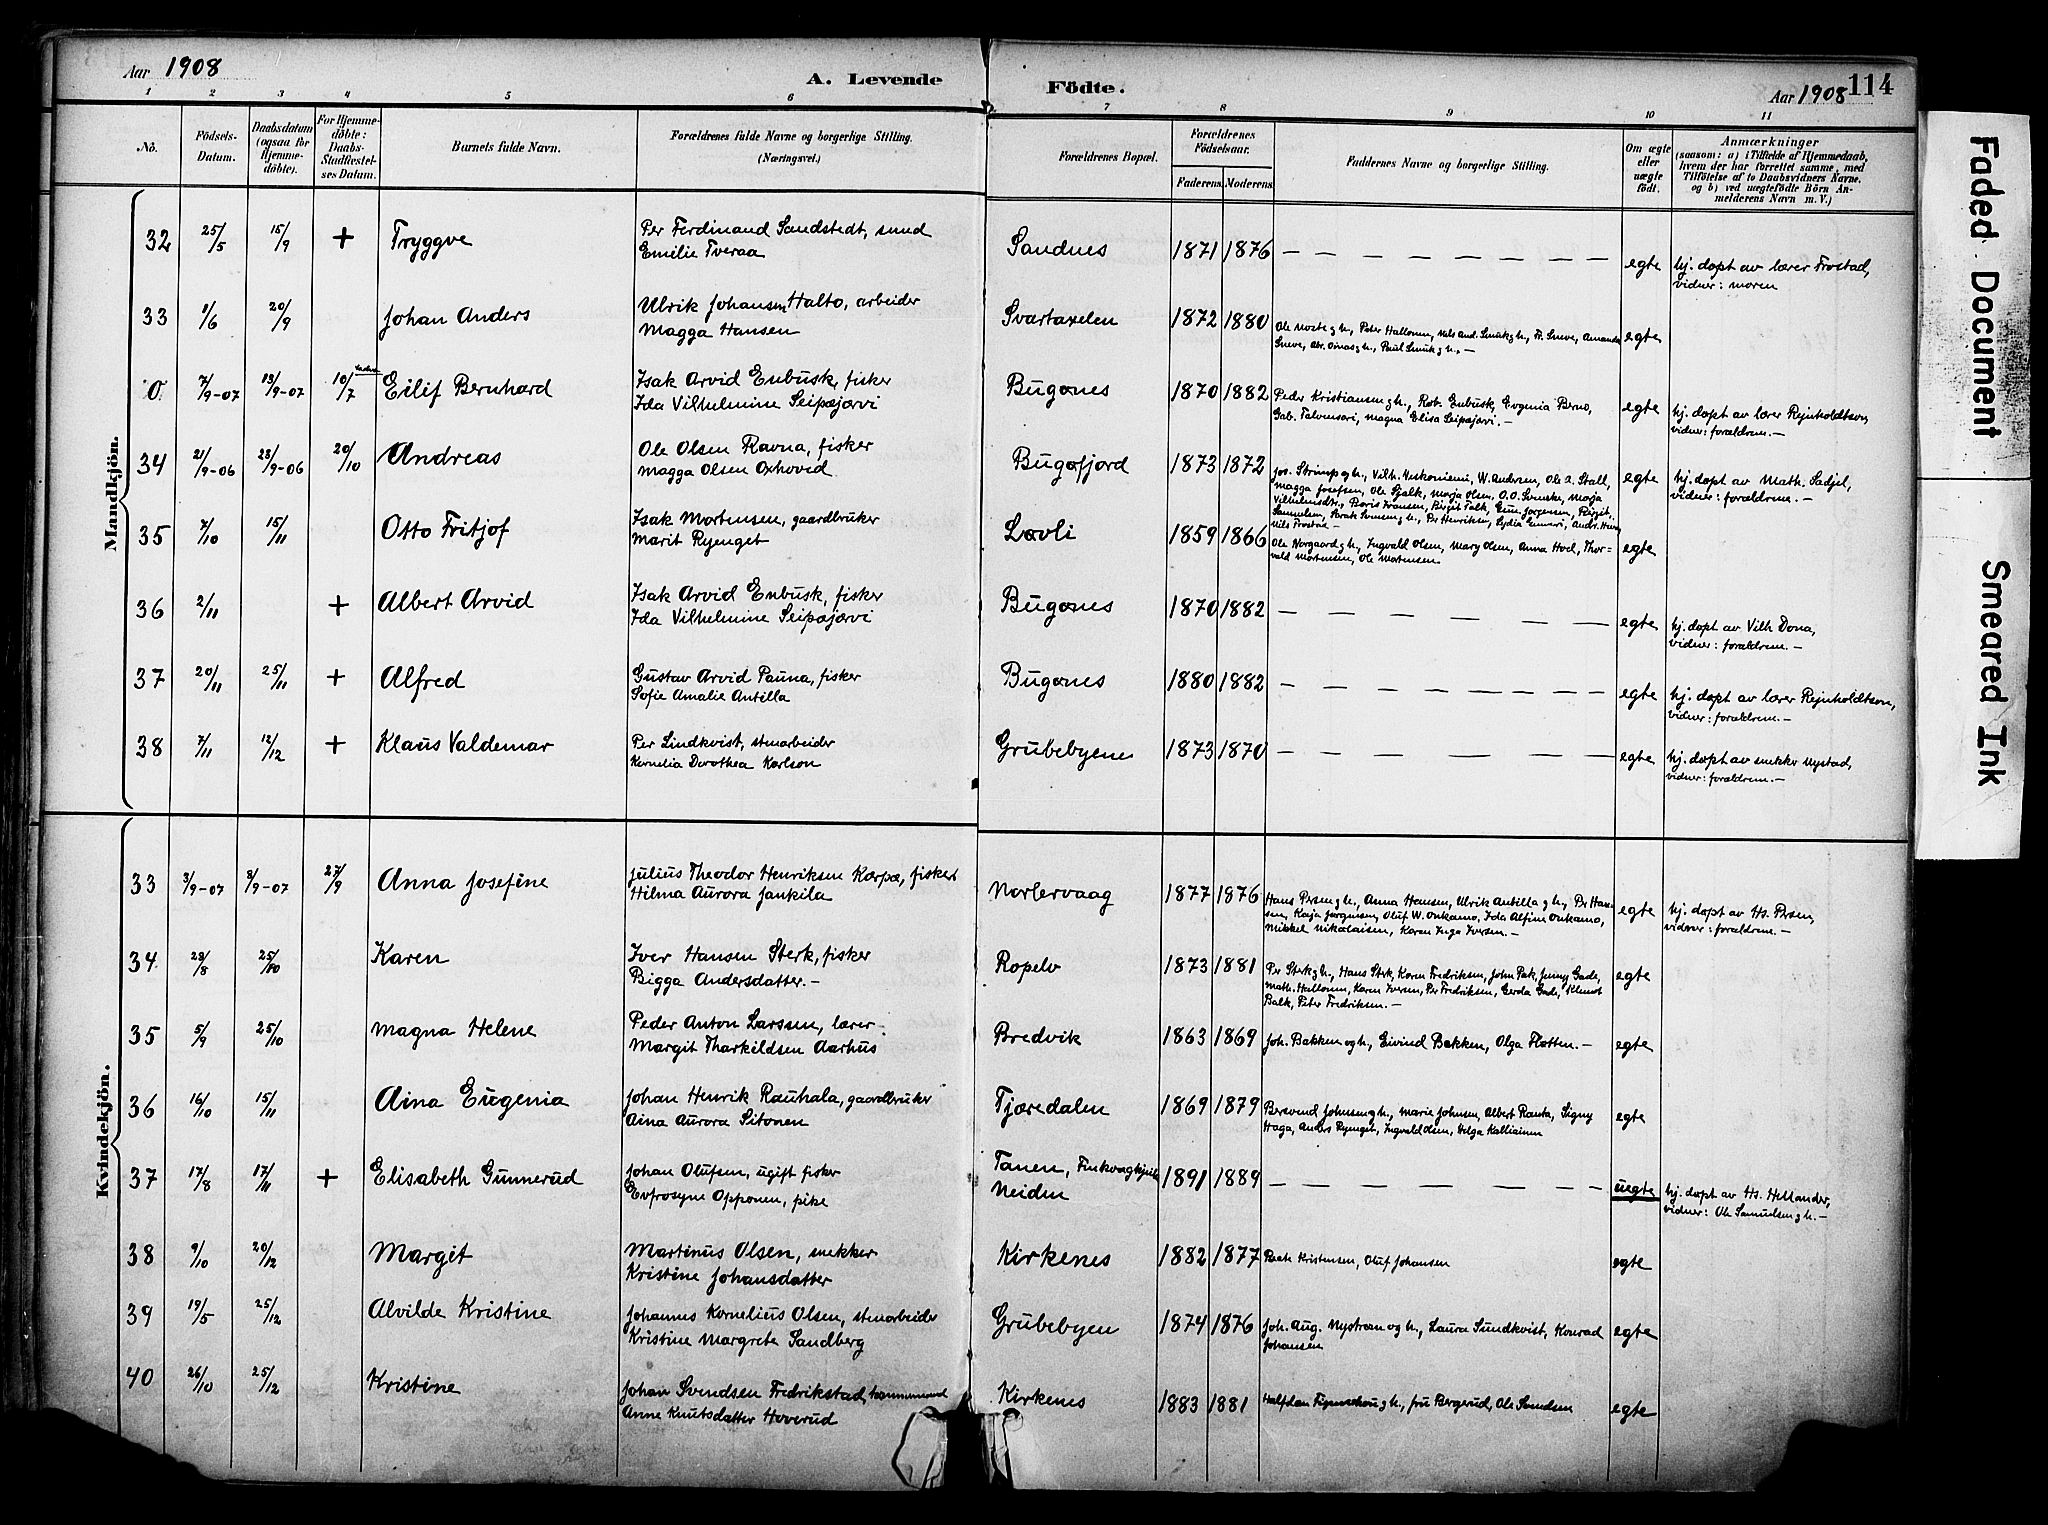 Aar 1908
A. Levende Födte.
Aar 1908 114
1 2 3 4 5 6 7 8 9 10 11
No.
Födsels-
Datum.
Daabsdatum
(ogsaa for
Hjemme-
döbte).
For Hjemme-
döbte:
Daabs-
Stadfæstel-
ses Datum.
Barnets fulde Navn.
Forældrenes fulde Navne og borgerlige Stilling.
(Næringsvei.)
Forældrenes Bopæl.
Forældrenes
Födselsaar.
Faderens. Moderens.
Faddernes Navne og borgerlige Stilling.
Om ægte
eller
uægte
födt.
Anmærkninger
(saasom: a) i Tilfælde af Hjemmedaab,
hvem der har forrettet samme, med
Tilföielse af to Daabsvidners Navne,
og b) ved uægtefödte Börn An-
melderens Navn m. V.)
Mandkjön.
32 25/5 15/9 + Tryggve
Per Ferdinand Sandstedt, smed
Emilie Tveraa
Sandnes 1871 1876 — — — — — — — egte
hj. døpt av lærer Frostad,
vidner: moren
33 1/6 20/9 Johan Anders
Ulrik Johansen Halto, arbeider
Magga Hansen
Svartaxelen 1872 1880
egte
0. 7/9-07 13/9-07 10/7 Eilif Bernhard
Isak Arvid Enbusk, fisker
Ida Vilhelmine Seipæjærvi
Bugønes 1870 1882
Peder Kristiansen g h., Rob. Enbusk, Evgenia Brno,
Gab. Talvensari, Magna Elisa Seipæjærvi. —
egte
hj. døpt av lærer Rejnholdtson,
vidner: forældrene. —
34 21/9-06 23/9-06 20/10 Andreas
Ole Olsen Ravna, fisker
Magga Olsen Oxhovid
Bugøfjord 1873 1872
egte
hj. døpt av Math. Sadjel,
vidner: forældrene. —
35 7/10 15/11 Otto Fritjof
Isak Mortensen, gaardbruker
Marit Ryenget
Løvli 1859 1866
Nils Frostad —
Ole Norgaard g h., Ingvald Olsen, Mary Olsen, Anna Hoel, Thor-
vald Mortensen, Ole Mortensen.
egte
36 2/11 + Albert Arvid
Isak Arvid Enbusk, fisker
Ida Vilhelmine Seipæjærvi
Bugønes 1870 1882 — — — — — — — egte
hj. døpt av Vilh Dona,
vidner: forældrene. —
37 20/11 25/11 + Alfred
Gustav Arvid Pauna, fisker
Sofie Amalie Antilla
Bugønes 1880 1882 — — — — — — — egte
hj. døpt av lærer Rejnholdtson,
vidner: forældrene. —
38 7/11 12/12 + Klaus Valdemar
Per Lindkvist, stenarbeider
Kornelia Dorothea Karlson
Grubebyene 1873 1870 — — — — — — — egte
hj. døpt av snekker Nystad,
vidner: forældrene. —
Kvindekjön.
33 3/9-07 8/9-07 27/9 Anna Josefine
Julius Theodor Henriksen Karpæ, fisker
Hilma Aurora Jankila
Norlervaag 1877 1876
Hans Persen g h., Anna Hansen, Ulrik Antilla g h., Per Han-
sen, Kaja Jørgensen, Oluf W. Onkamo, Ida Alfine Onkamo,
Mikkel Nikolaisen, Karen Inga Iversen. —
egte
hj. døpt av Hs. Persen,
vidner: forældrene. —
34 23/8 25/10 Karen
Iver Hansen Sterk, fisker
Bigga Andersdatter. —
Ropelv 1873 1881
Per Sterk g h., Hans Sterk, Karen Fredriksen, John Pak, Jenny Gade,
Math. Hallonen, Karen Iversen, Per Fredriksen, Gerda Gade, Klemet
Balk, Peter Fredriksen. —
egte
35 5/9 25/10 Magna Helene
Peder Anton Larssen, lærer
Margit Tharkildsen Aarhus
Bredvik 1863 1869
Joh. Bakken og h., Eivind Bakken, Olga Fløtten. —
egte
36 16/10 15/11 Aina Eugenia
Johan Henrik Rauhala, gaardbruker
Aina Aurora Sitonen
Tjæredalen 1869 1879
Bersvend Johnsen g h., Marie Johnsen, Albert Ranta, Signy
Haga, Anders Ryenget, Ingvald Olsen, Helga Kalliainen
egte
37 17/8 17/11 + Elisabeth Gunnerud
Johan Olufsen, ugift fisker
Evfrosyne Opponen, pike
Tanen,
Neiden
1891 1889 — — — — — — — uegte
hj. døpt av Hs. Hellander,
vidner: Ole Samuelsen g h. —
38 9/10 20/12 Margit
Martinus Olsen, snekker
Kristine Johansdatter
Kirkenes 1882 1877
Kristensen, Oluf Johansen
egte
39 19/5 25/12 Alvilde Kristine
Johannes Kornelius Olsen, stenarbeider
Kristine Margrete Sandberg
Grubebyen 1874 1876
Joh. Aug. Nystrøm og h., Laura Sundkvist, Konrad
Johansen
egte
40 26/10 25/12 Kristine
Johan Svendsen Fredrikstad,
Anne Knutsdatter Hoverud
Kirkenes 1883 1881
Halfdan g h., fru Bergerud, Ole Svendsen
egte
Faded Document
Smeared Ink